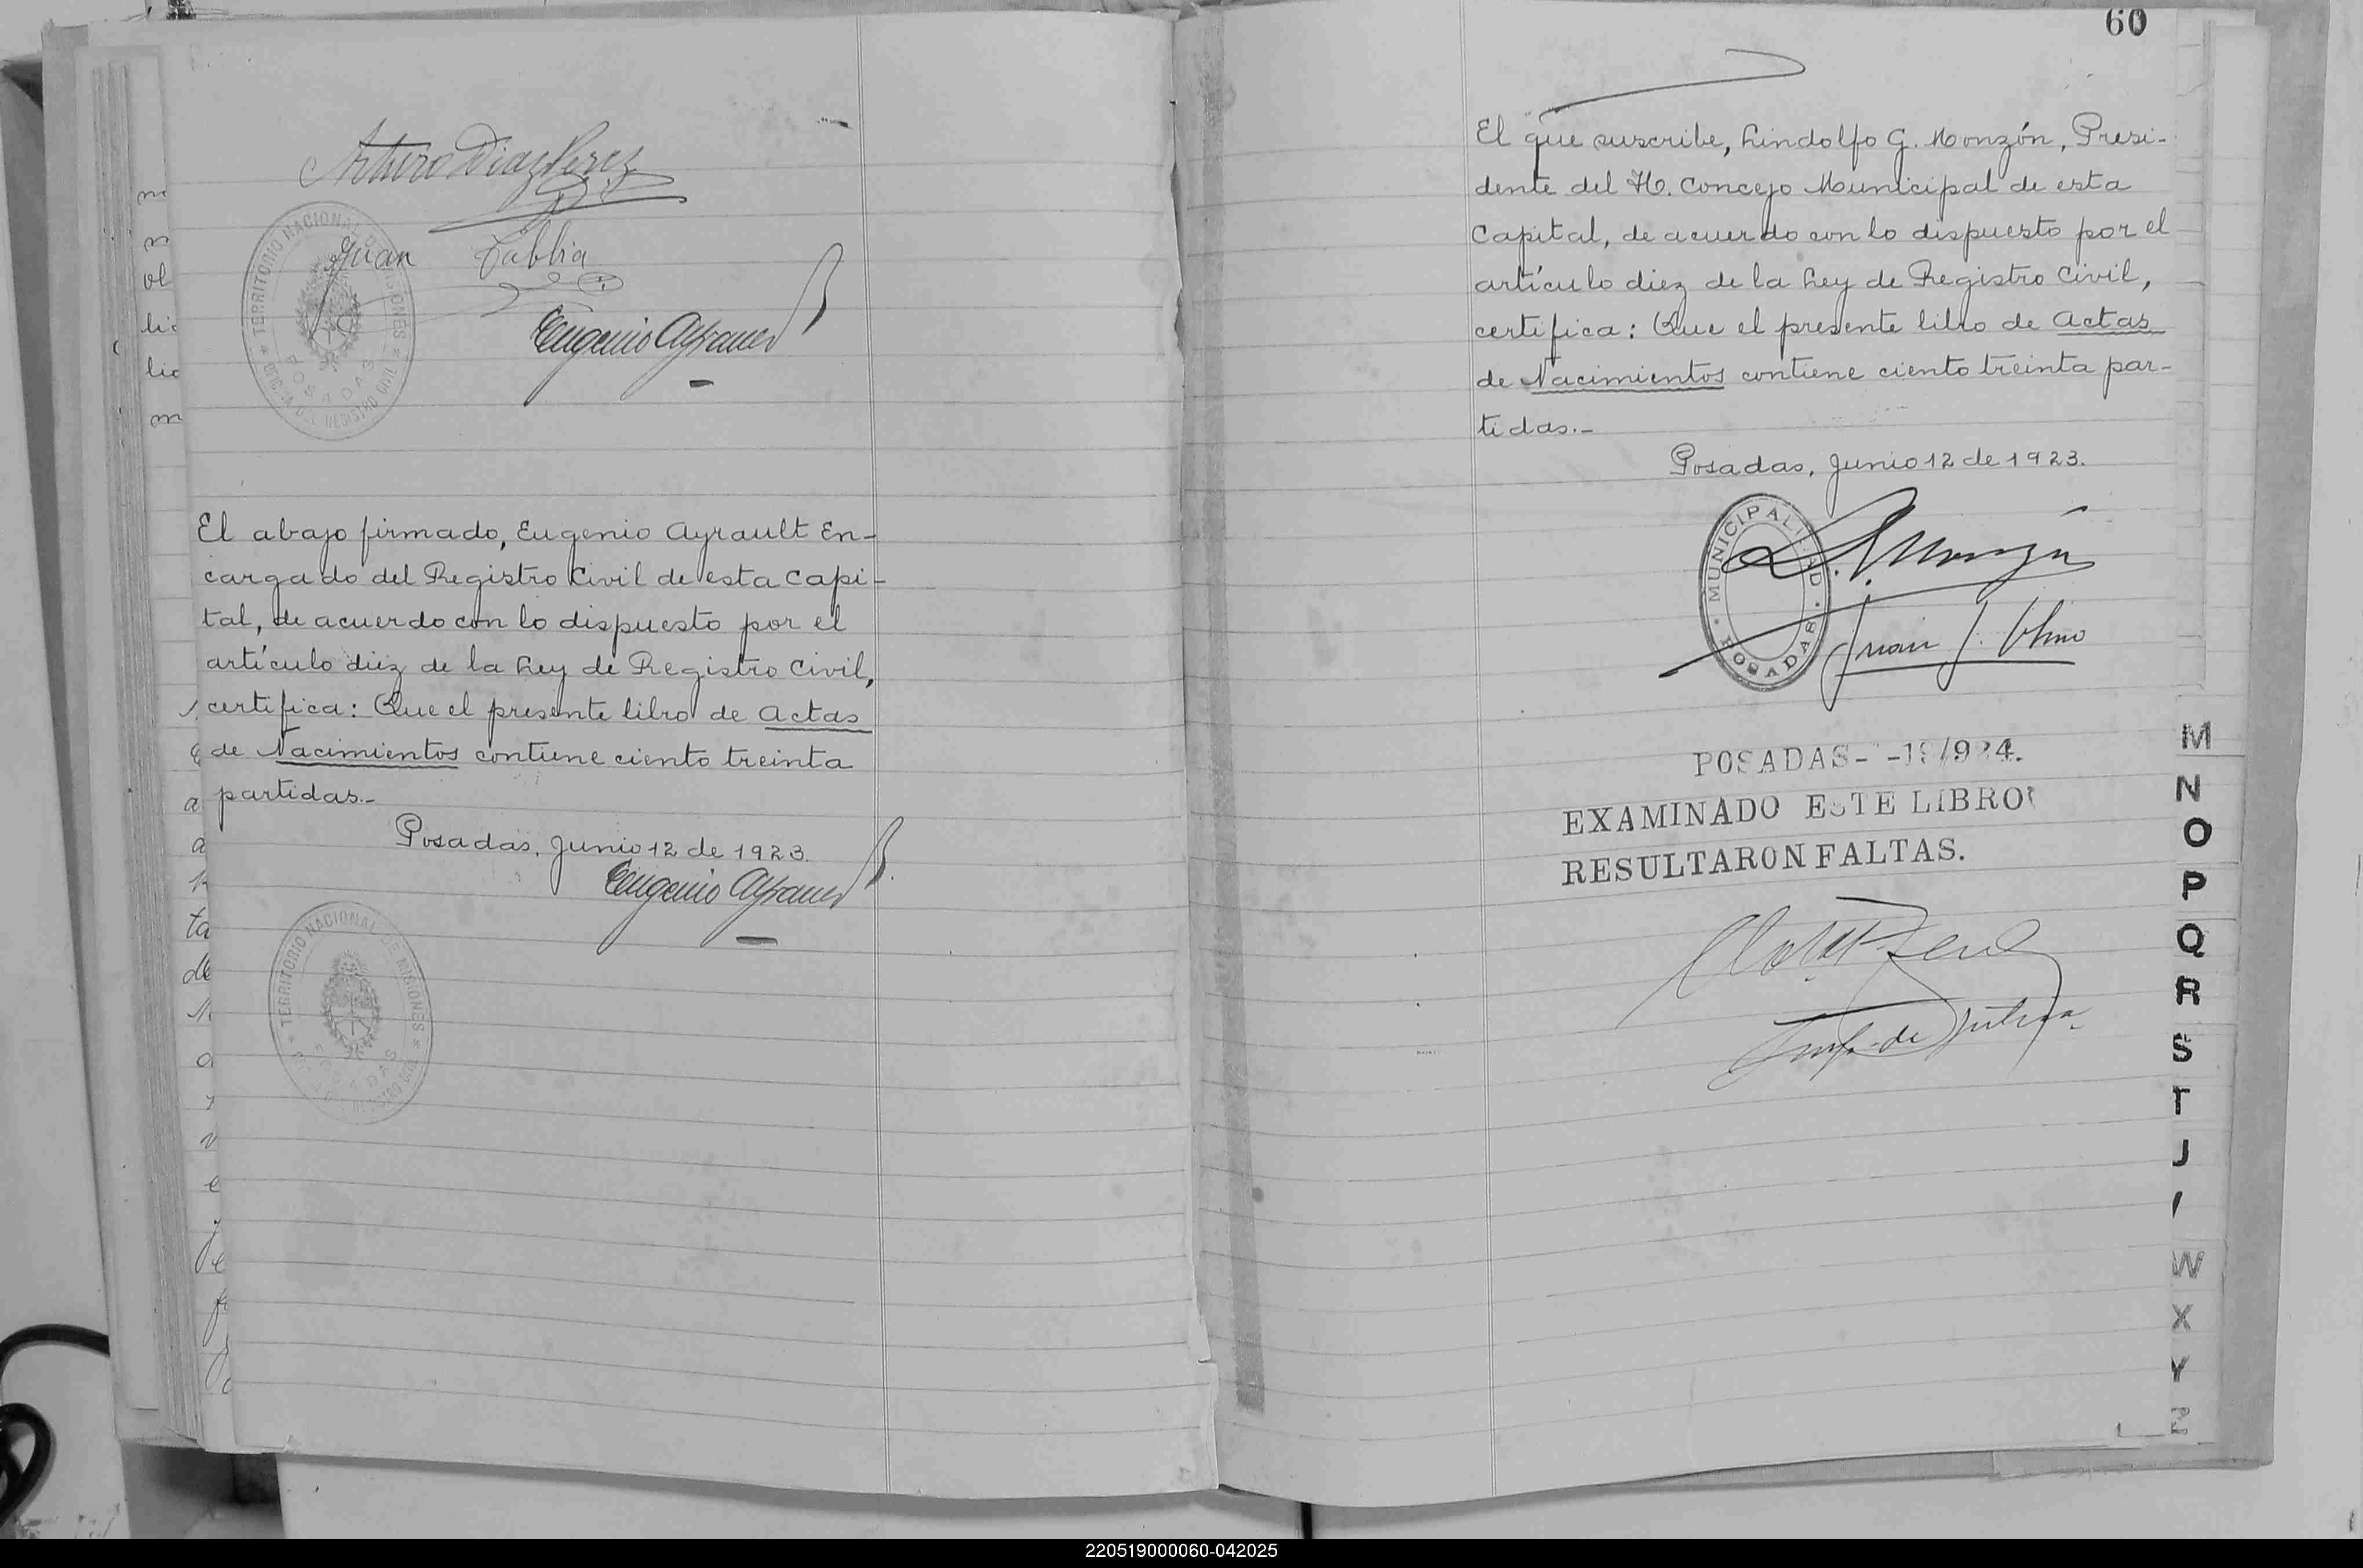 Arturo Diaz Perez
Juan Tabbia
Eugenio Ayrault
TERRITORIO NACIONAL DE MISIONES
OFICINA DEL REGISTRO CIVIL
POSADAS
El abajo firmado, Eugenio Ayrault En-
cargado del Registro Civil de esta Capi-
tal, de acuerdo con lo dispuesto por el
artículo diez de la Ley de Registro Civil,
certifica: Que el presente libro de Actas
de Nacimientos contiene ciento treinta
partidas.-
Posadas, Junio 12 de 1923.
Eugenio Ayrault
TERRITORIO NACIONAL DE MISIONES
POSADAS
60
El que suscribe, Lindolfo G. Monzón, Presi-
dente del H. Concejo Municipal de esta
Capital, de acuerdo con lo dispuesto por el
artículo diez de la Ley de Registro Civil,
certifica: Que el presente libro de Actas
de Nacimientos contiene ciento treinta par-
tidas.-
Posadas, Junio 12 de 1923.
MUNICIPALIDAD
POSADAS
L. G. Monzón
Juan J.
POSADAS- -19/924.
EXAMINADO ESTE LIBRO
RESULTARON FALTAS.
M
N
O
P
Q
R
S
T
J
W
X
Y
Z
220519000060-042025